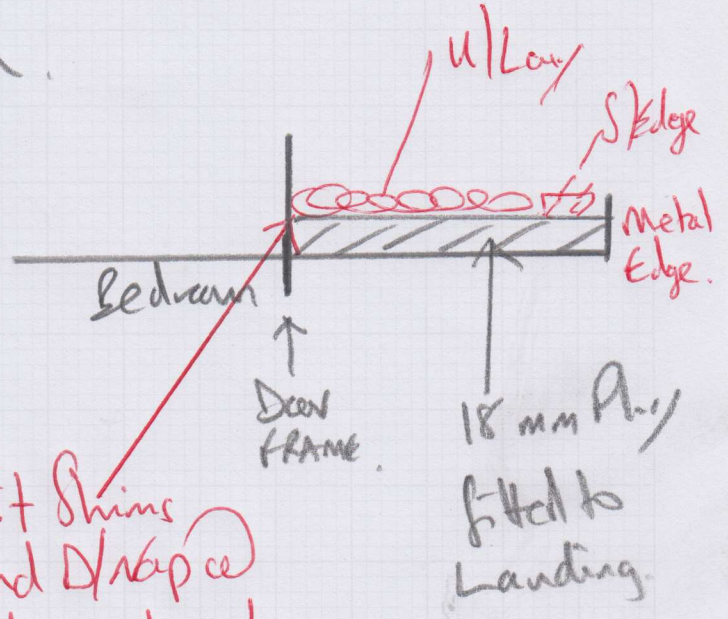 U/Lay
S/Edge
Metal
Edge.
Bedroom
Door
FRAME.
18 mm Ply
fitted to
Landing.
Shims
D/Nap @